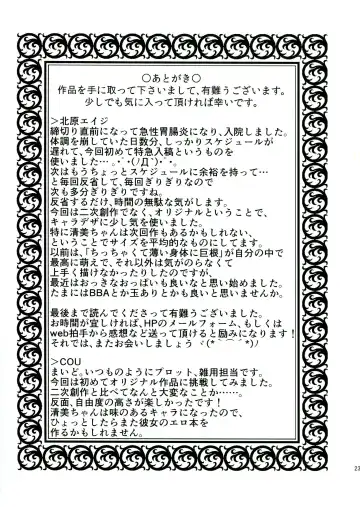 ○あとがき○
作品を手に取って下さいまして、有難うございます。
少しでも気に入って頂ければ幸いです。
>北原エイジ
締切り直前になって急性胃腸炎になり、入院しました。
体調を崩していた日数分、しっかりスケジュールが
遅れて、今回初めて特急入稿というものを
使いました…。･ﾟ･(ﾉД`)･ﾟ･。
次はもうちょっとスケジュールに余裕を持って
と毎回反省して、毎回ぎりぎりなので
次も多分ぎりぎりですね。
反省するだけ、時間の無駄な気がします。
今回は二次創作でなく、オリジナルということで、
キャラデザに少し気を使いました。
特に清美ちゃんは次回作もあるかもしれない、
ということでサイズを平均的なものにしてます。
以前は、「ちっちゃくて薄い身体に巨根」が自分の中で
最高に萌えで、それ以外は気がのらなくて
上手く描けなかったりしたのですが、
最近はおっきなおっぱいも良いなと思い始めました。
たまにはBBAとか玉ありとかも良いと思いませんか。
最後まで読んでくださって有難うございました。
お時間が宜しければ、HPのメールフォーム、もしくは
web拍手から感想など送って頂けると励みになります!
それでは、またお会いしましょうヾ(*´⌒`*)ﾉ
>COU
まいど。いつものようにプロット、雑用担当です。
今回は初めてオリジナル作品に挑戦してみました。
二次創作と比べてなんと大変なことか…。
反面、自由度の高さが楽しかったです!
清美ちゃんは味のあるキャラになったので、
ひょっとしたらまた彼女のエロ本を
作るかもしれません。